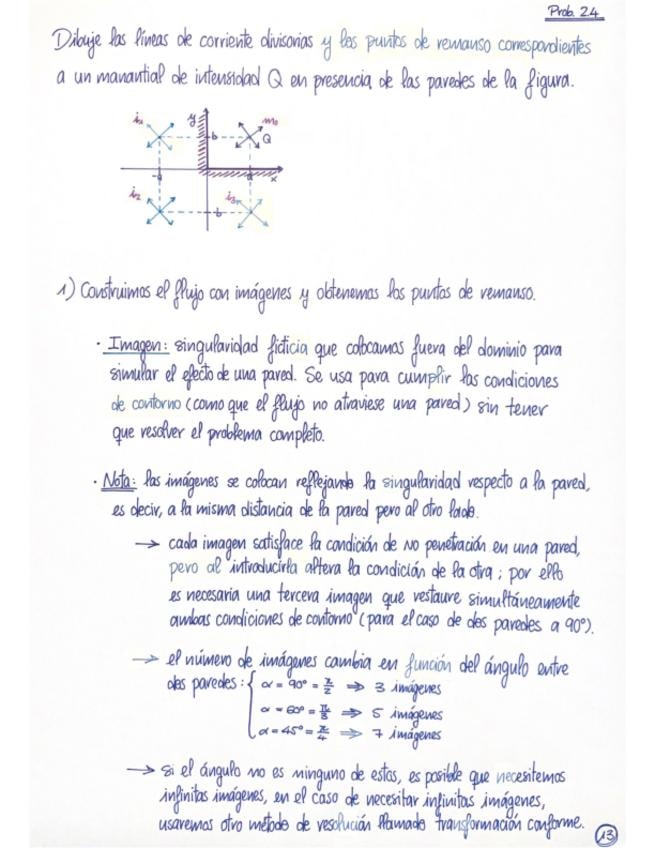 Prob. 2.4
Dibuje las líneas de corriente divisorias y los puntos de remanso correspondientes
a un manantial de intensidad Q en presencia de las paredes de la figura.
i₁ y m₀
b Q
-a a x
i₂ -b i₃
1) Construimos el flujo con imágenes y obtenemos los puntos de remanso.
· Imagen: singularidad ficticia que colocamos fuera del dominio para
simular el efecto de una pared. Se usa para cumplir las condiciones
de contorno (como que el flujo no atraviese una pared) sin tener
que resolver el problema completo.
· Nota: las imágenes se colocan reflejando la singularidad respecto a la pared,
es decir, a la misma distancia de la pared pero al otro lado.
→ cada imagen satisface la condición de no penetración en una pared,
pero al introducirla altera la condición de la otra; por ello
es necesaria una tercera imagen que restaure simultáneamente
ambas condiciones de contorno (para el caso de dos paredes a 90º).
→ el número de imágenes cambia en función del ángulo entre
dos paredes: { α = 90º = π/2 ⇒ 3 imágenes
α = 60º = π/3 ⇒ 5 imágenes
α = 45º = π/4 ⇒ 7 imágenes
→ si el ángulo no es ninguno de estos, es posible que necesitemos
infinitas imágenes, en el caso de necesitar infinitas imágenes,
usaremos otro método de resolución llamado transformación conforme.
13